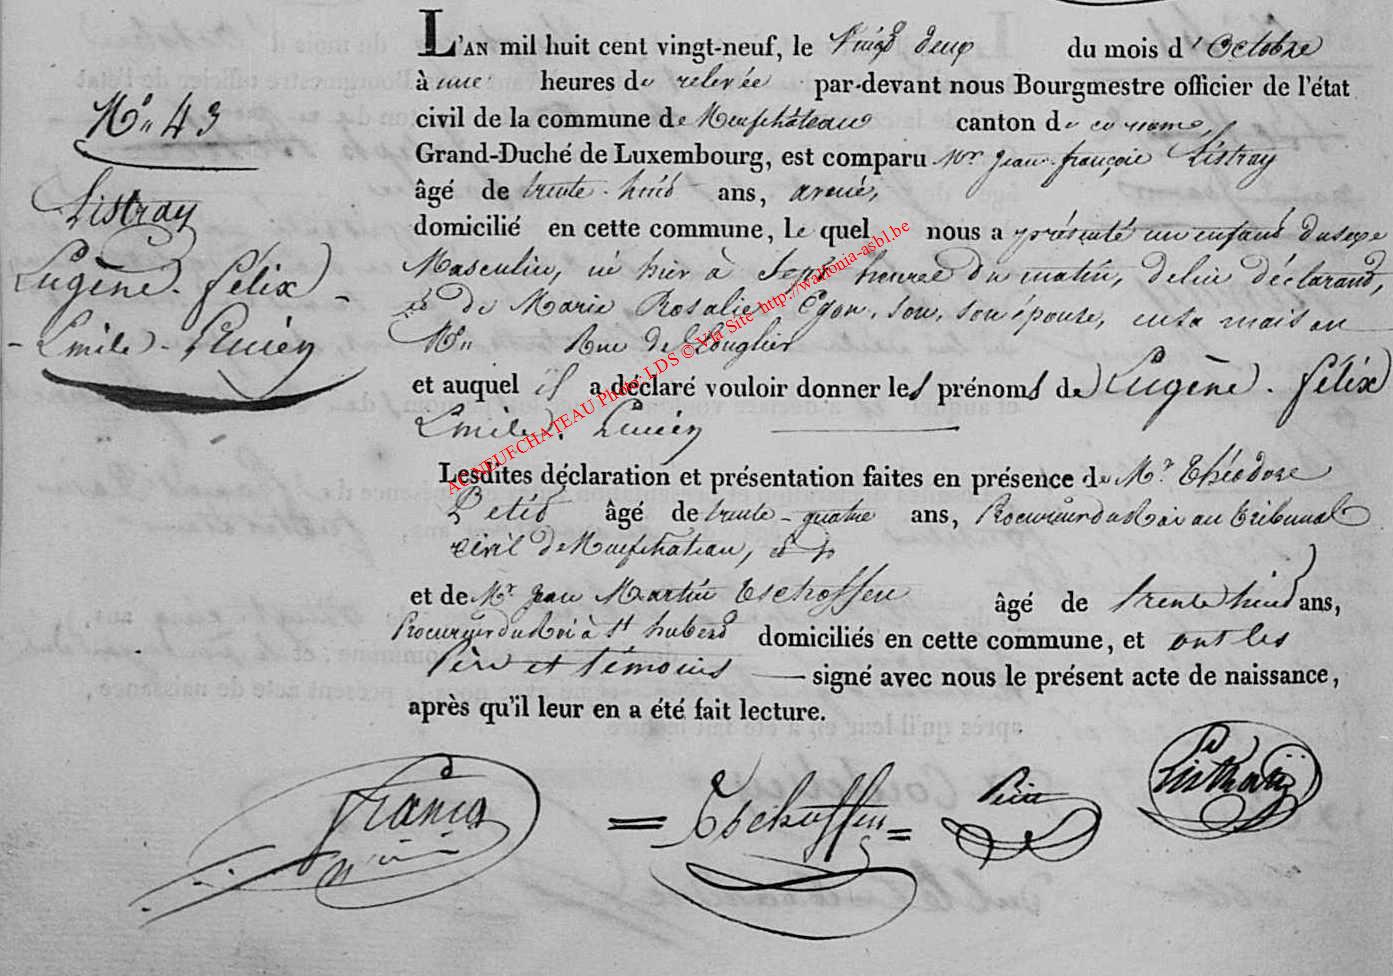 L'AN mil huit cent vingt-neuf, le vingt deux du mois d'Octobre
à une heures de relevée par-devant nous Bourgmestre officier de l'état
N° 43
civil de la commune de Neufchâteau canton de ce nom,
Grand-Duché de Luxembourg, est comparu Mr Jean-françois Listray
âgé de trente-huit ans, avoué,
Listray
Eugène-félix
-Emile-Lucien
domicilié en cette commune, le quel nous a présenté un enfant du sexe
Masculin, né hier à Sept heures du matin, de lui déclarant,
et de Marie Rosalie son épouse, en sa maison
Rue de Longlier
et auquel il a déclaré vouloir donner les prénoms de Eugène-félix
Emile-Lucien
AC NEUFCHATEAU Photo LDS © Via Site http://wallonia-asbl.be
Lesdites déclaration et présentation faites en présence de Mr Théodore
Petit âgé de trente-quatre ans, Procureur du Roi au tribunal
civil de Neufchâteau,
et de Mr Jean Martin Tschoffen âgé de trente huit ans,
Procureur du Roi à St hubert domiciliés en cette commune, et ont les
Père et témoins signé avec nous le présent acte de naissance,
après qu'il leur en a été fait lecture.
Tschoffen
Petit
Listray